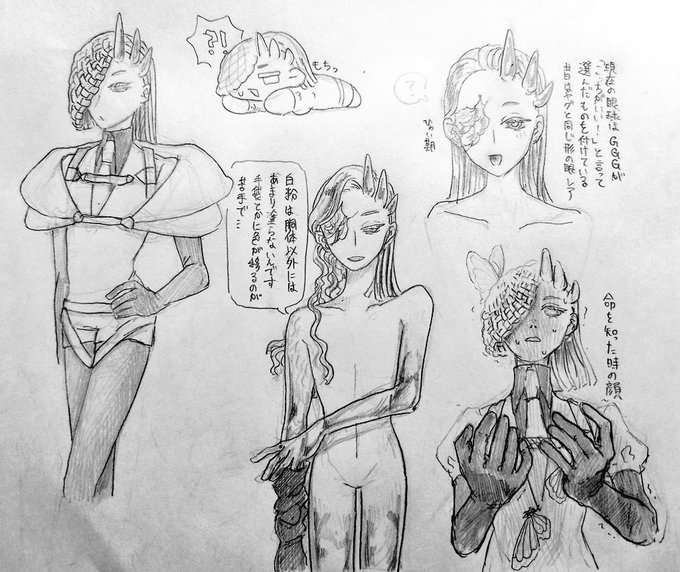 ?!
もちっ
現在の眼球はGGGが
「こっちがいい!」と言って
選んだものを付けている
昔はヤグと同じ形の眼
?
白粉は胴体以外には
あまり塗らないんです
手袋とかに色が移るのが
苦手で…
命を知った時の顔